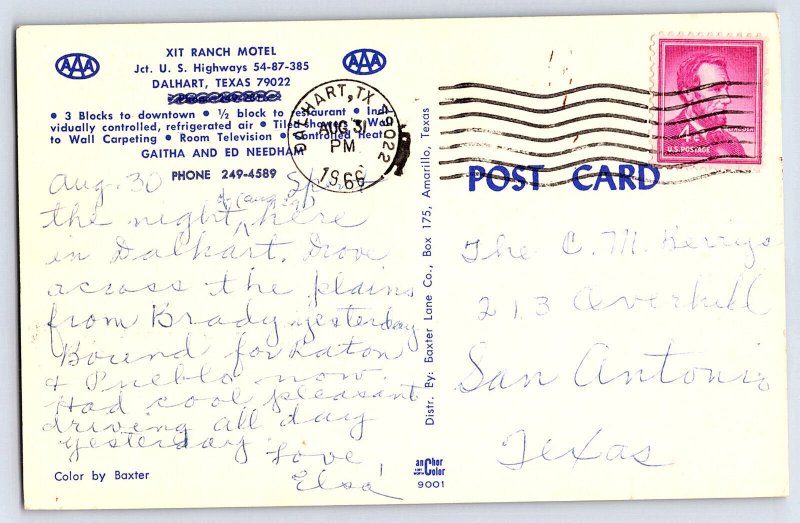 AAA
XIT RANCH MOTEL
Jct. U. S. Highways 54-87-385
DALHART, TEXAS 79022
AAA
• 3 Blocks to downtown • ½ block to restaurant • Indi-
vidually controlled, refrigerated air • Tiled Wall
to Wall Carpeting • Room Television • Controlled Heat
GAITHA AND ED NEEDHAM
PHONE 249-4589
DALHART, TX 79022
AUG 31
PM
1966
Aug. 30 Spent
the night here
in Dalhart. Drove
across the plains
from Brady yesterday
Bound for Raton
& Pueblo now.
Had cool pleasant
driving all day
yesterday.
Love
Elsa
Color by Baxter
Distr. By: Baxter Lane Co., Box 175, Amarillo, Texas
anChor
Color
9001
4¢
LINCOLN
U.S. POSTAGE
POST CARD
The C. M. Berrys
213 Averhill
San Antonio
Texas